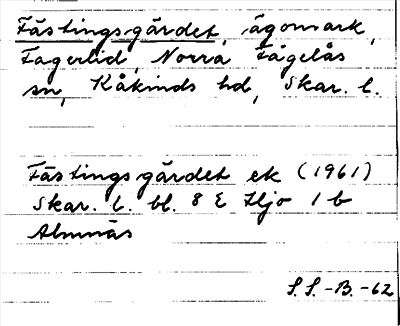 Fästingsgärdet, ägomark,
Fagerlid, Norra Fågelås
sn, Kåkinds hd, Skar. l.
Fästingsgärdet ek (1961)
Skar. l. bl. 8 E Hjo 1 b
Almnäs
S.S.-B.-62